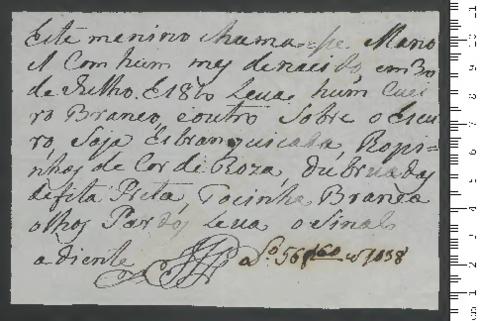 Este menino chama-se Mano
el Com hum mes de nacido, em 30
de Julho. E 1810 Leva. hum Cuei
ro Branco, e outro Sobre o Escu
ro, Saja Esbranquicada, Ropi=
nhos de Cor de Roza, Debruados
de fita Preta, Tocinha Branca
olhos Pardos, Leva o Sinal
a diente a Lo. 56 1038